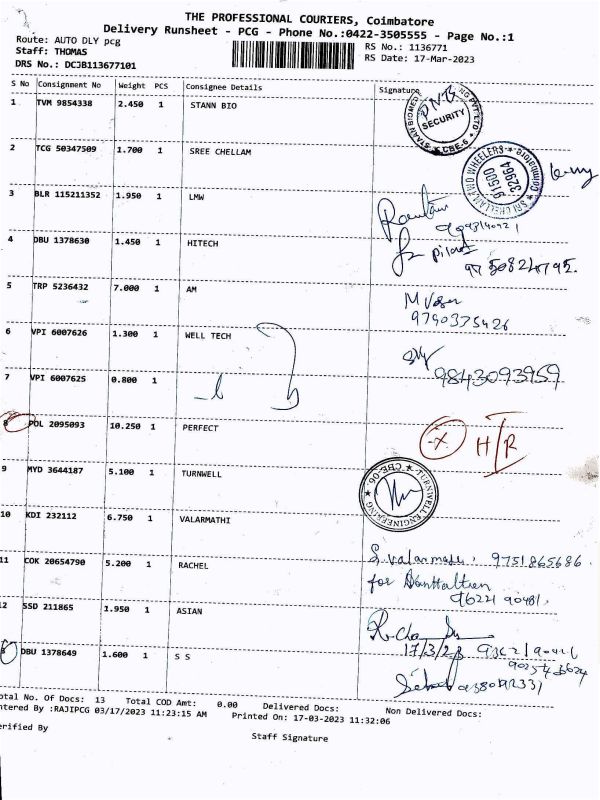 THE PROFESSIONAL COURIERS, Coimbatore
Delivery Runsheet - PCG - Phone No.:0422-3505555 - Page No.:1
Route: AUTO DLY pcg
RS No.: 1136771
Staff: THOMAS
RS Date: 17-Mar-2023
DRS No.: DCJB113677101
S No Consignment No Weight PCS Consignee Details Signature
1 TVM 9854338 2.450 1 STANN BIO
SECURITY
CBE-6
2 TCG 50347509 1.700 1 SREE CHELLAM
SRI CHELLAMAND WHEELERS Coimbatore
91500
32964
3 BLR 115211352 1.950 1 LMW
4 DBU 1378630 1.450 1 HITECH
5 TRP 5236432 7.000 1 AM
9790375426
6 VPI 6007626 1.300 1 WELL TECH
9843093959
7 VPI 6007625 0.800 1
8 POL 2095093 10.250 1 PERFECT
X H/R
9 MYD 3644187 5.100 1 TURNWELL
TURNWELL ENGINEERING CBE-06
10 KDI 232112 6.750 1 VALARMATHI
S. Valarmathi. 9751865686
11 COK 20654790 5.200 1 RACHEL
for
96221 90481
12 SSD 211865 1.950 1 ASIAN
17/3/23
DBU 1378649 1.600 1 S S
otal No. Of Docs: 13 Total COD Amt: 0.00 Delivered Docs: Non Delivered Docs:
ntered By :RAJIPCG 03/17/2023 11:23:15 AM Printed On: 17-03-2023 11:32:06
erified By
Staff Signature